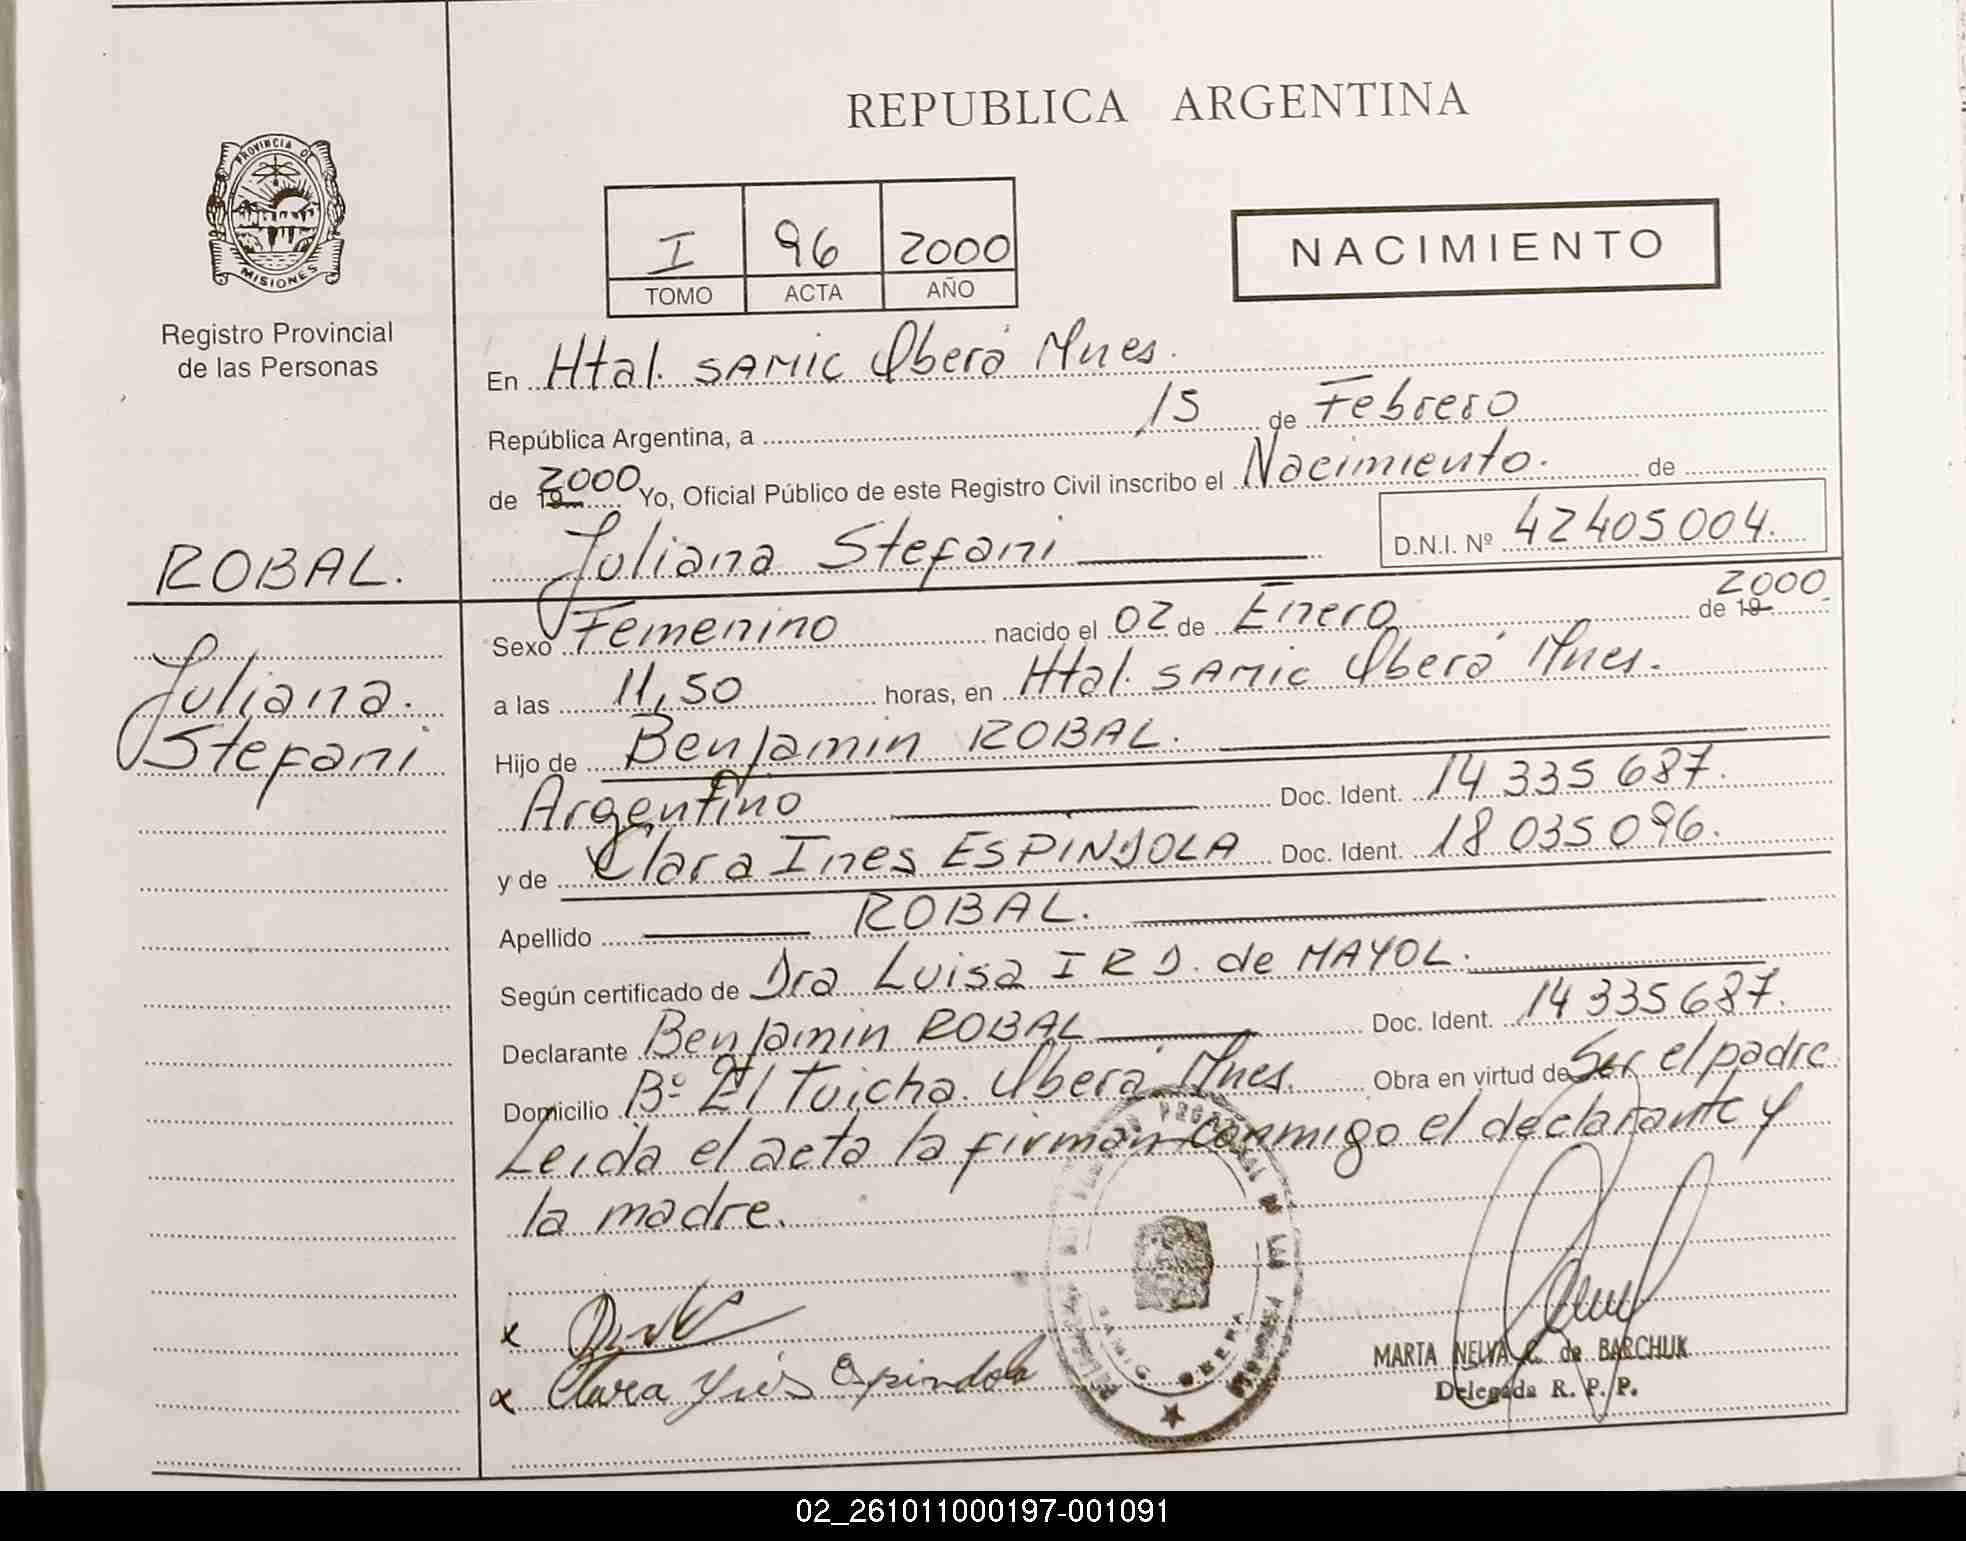 REPUBLICA ARGENTINA
PROVINCIA DE
MISIONES
Registro Provincial
de las Personas
I 96 2000
TOMO ACTA AÑO
NACIMIENTO
En Htal. SAMIC Oberá Mnes.
República Argentina, a 15 de Febrero
de 19 2000 Yo, Oficial Público de este Registro Civil inscribo el Nacimiento. de
Juliana Stefani D.N.I. Nº 42405004.
ROBAL.
Juliana.
Stefani
Sexo Femenino nacido el 02 de Enero de 19 2000
a las 11,50 horas, en Htal. SAMIC Oberá Mnes.
Hijo de Benjamin ROBAL.
Argentino Doc. Ident. 14 335 687.
y de Clara Ines ESPINDOLA Doc. Ident. 18 035 096.
Apellido ROBAL.
Según certificado de Dra Luisa I R D. de MAYOL.
Declarante Benjamin ROBAL Doc. Ident. 14 335 687.
Domicilio Bº El Tuicha. Oberá Mnes. Obra en virtud de Ser el padre
Leida el acta la firman conmigo el declarante y
la madre.
x
x Clara Ynés Espindola
OBERA
MISIONES
MARTA NELVA de BARCHUK
Delegada R. P. P.
02_261011000197-001091